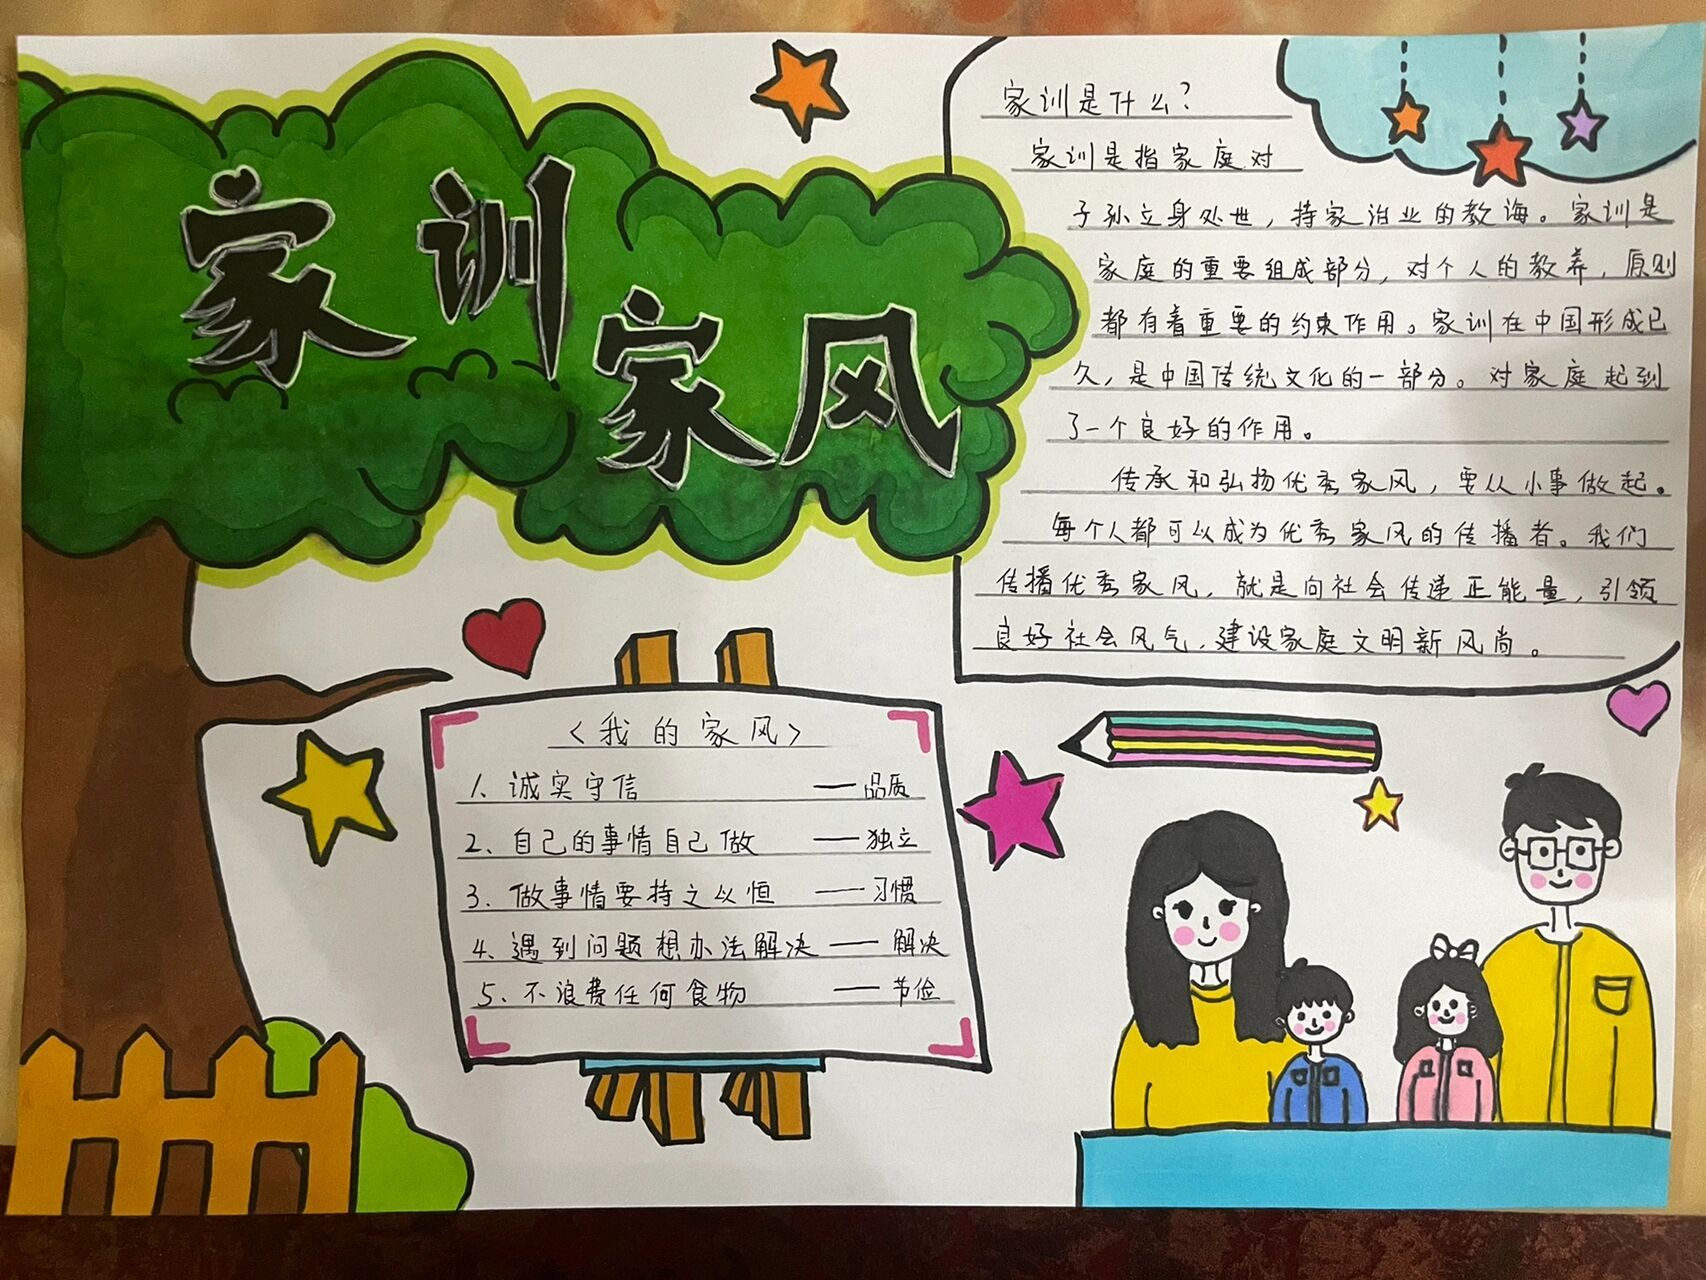 家训
家风
家训是什么？
家训是指家庭对
子孙立身处世，持家治业的教诲。家训是
家庭的重要组成部分，对个人的教养，原则
都有着重要的约束作用。家训在中国形成已
久，是中国传统文化的一部分。对家庭起到
了一个良好的作用。
传承和弘扬优秀家风，要从小事做起。
每个人都可以成为优秀家风的传播者。我们
传播优秀家风，就是向社会传递正能量，引领
良好社会风气，建设家庭文明新风尚。
〈我的家风〉
1、诚实守信 —— 品质
2、自己的事情自己做 —— 独立
3、做事情要持之以恒 —— 习惯
4、遇到问题想办法解决 —— 解决
5、不浪费任何食物 —— 节俭